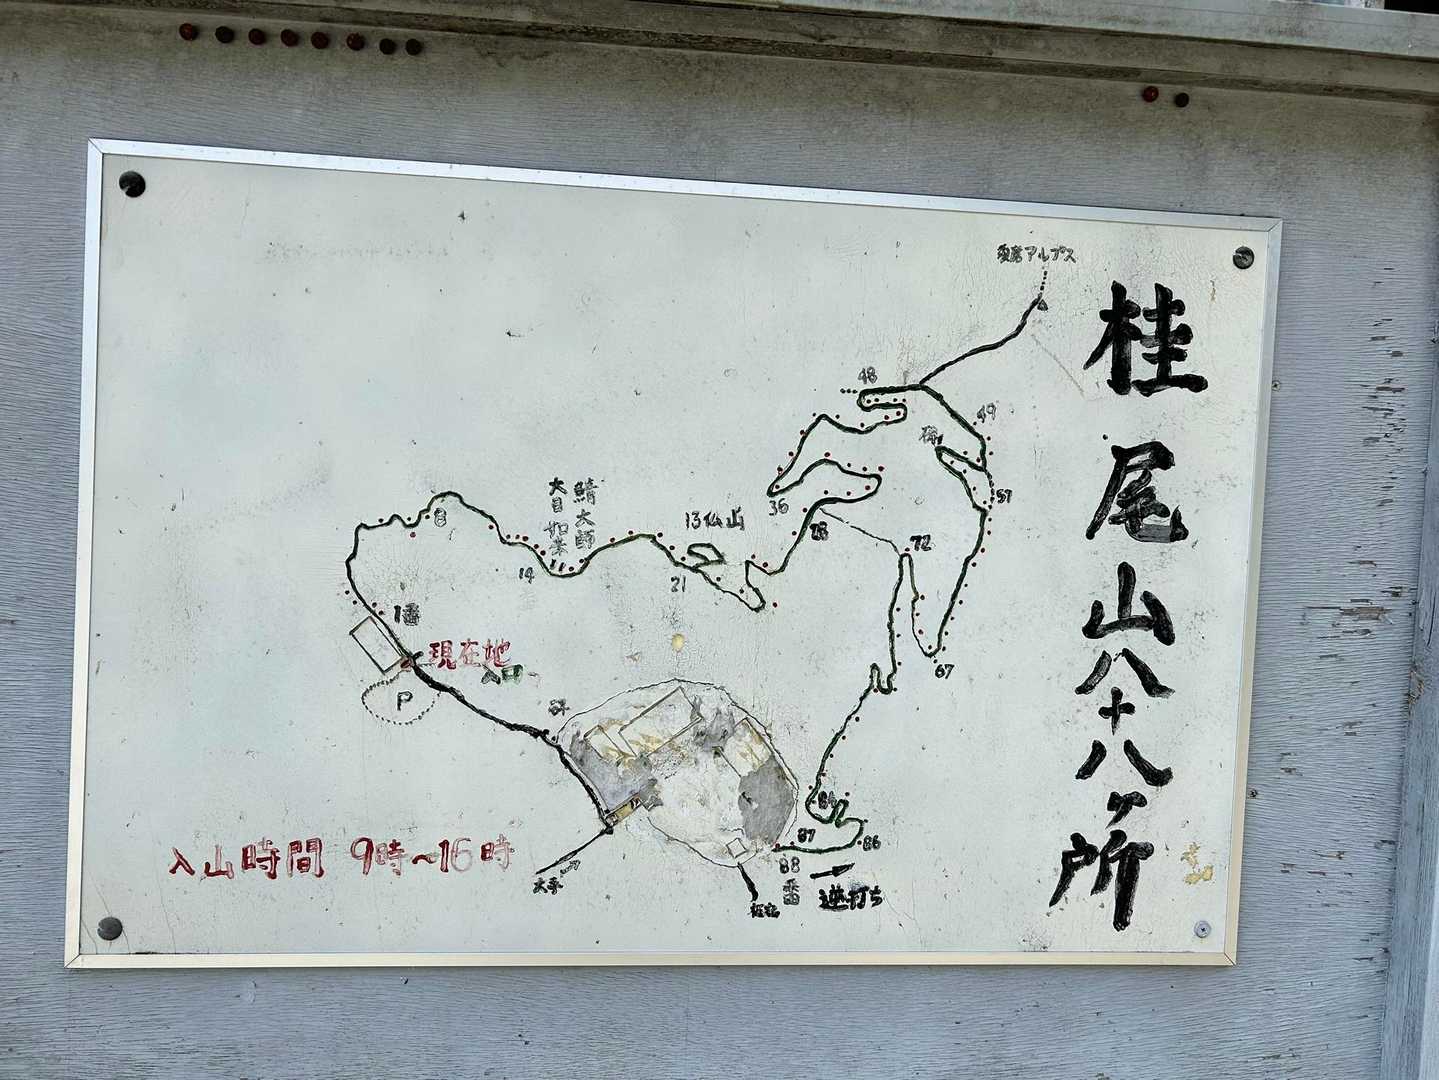 桂尾山八十八ヶ所
須磨アルプス
48
49
碑
57
36
28
72
13仏山
鯖大師
大日如来
8
14
21
1番
現在地
入口
P
67
84
87
86
88番
逆打ち
大手
入山時間 9時~16時